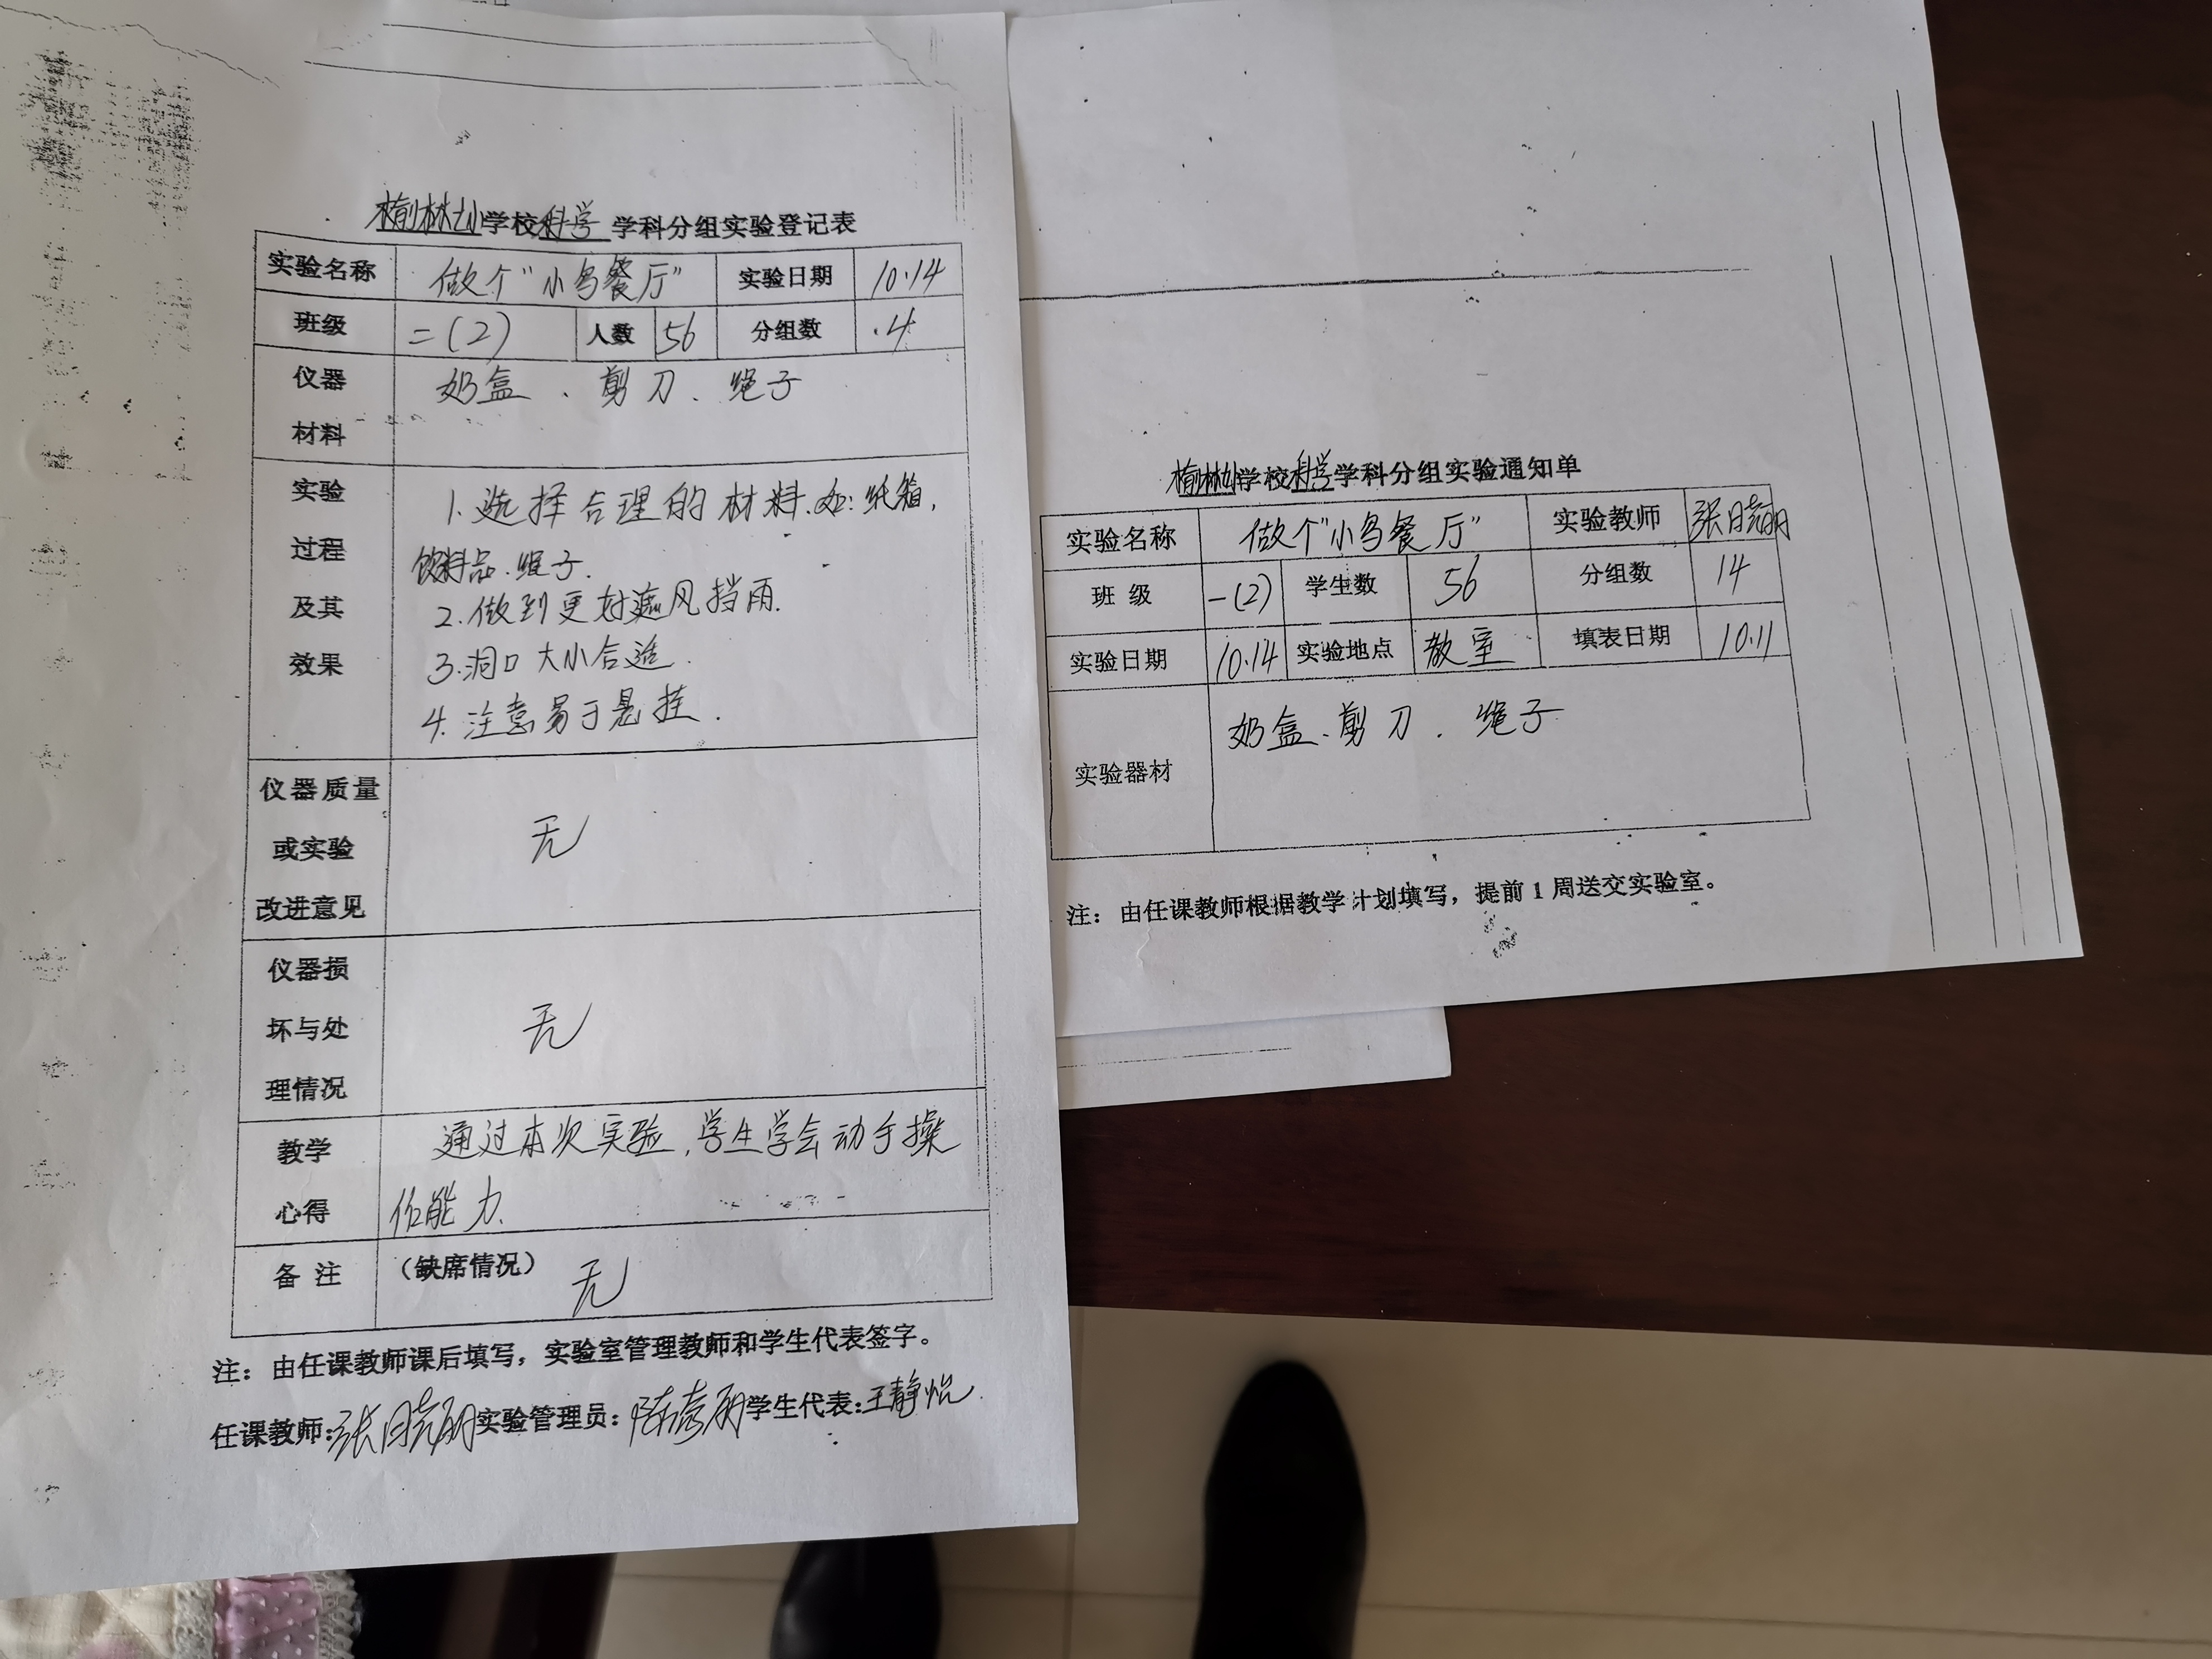 榆林小学校科学 学科分组实验登记表
实验名称 做个“小鸟餐厅” 实验日期 10.14
班级 二(2) 人数 56 分组数 .4
仪器材料 奶盒、剪刀、绳子
实验过程及其效果 1.选择合理的材料.如:纸箱,
饮料品.绳子.
2.做到更好遮风挡雨.
3.洞口大小合适.
4.注意易于悬挂.
仪器质量或实验改进意见 无
仪器损坏与处理情况 无
教学心得 通过本次实验,学生学会动手操
作能力.
备 注 (缺席情况) 无
注：由任课教师课后填写，实验室管理教师和学生代表签字。
任课教师:张晓丽 实验管理员: 学生代表:王静怡
榆林小学校科学学科分组实验通知单
实验名称 做个“小鸟餐厅” 实验教师 张晓丽
班 级 一(2) 学生数 56 分组数 14
实验日期 10.14 实验地点 教室 填表日期 10.11
实验器材 奶盒、剪刀.绳子
注：由任课教师根据教学计划填写，提前 1 周送交实验室。